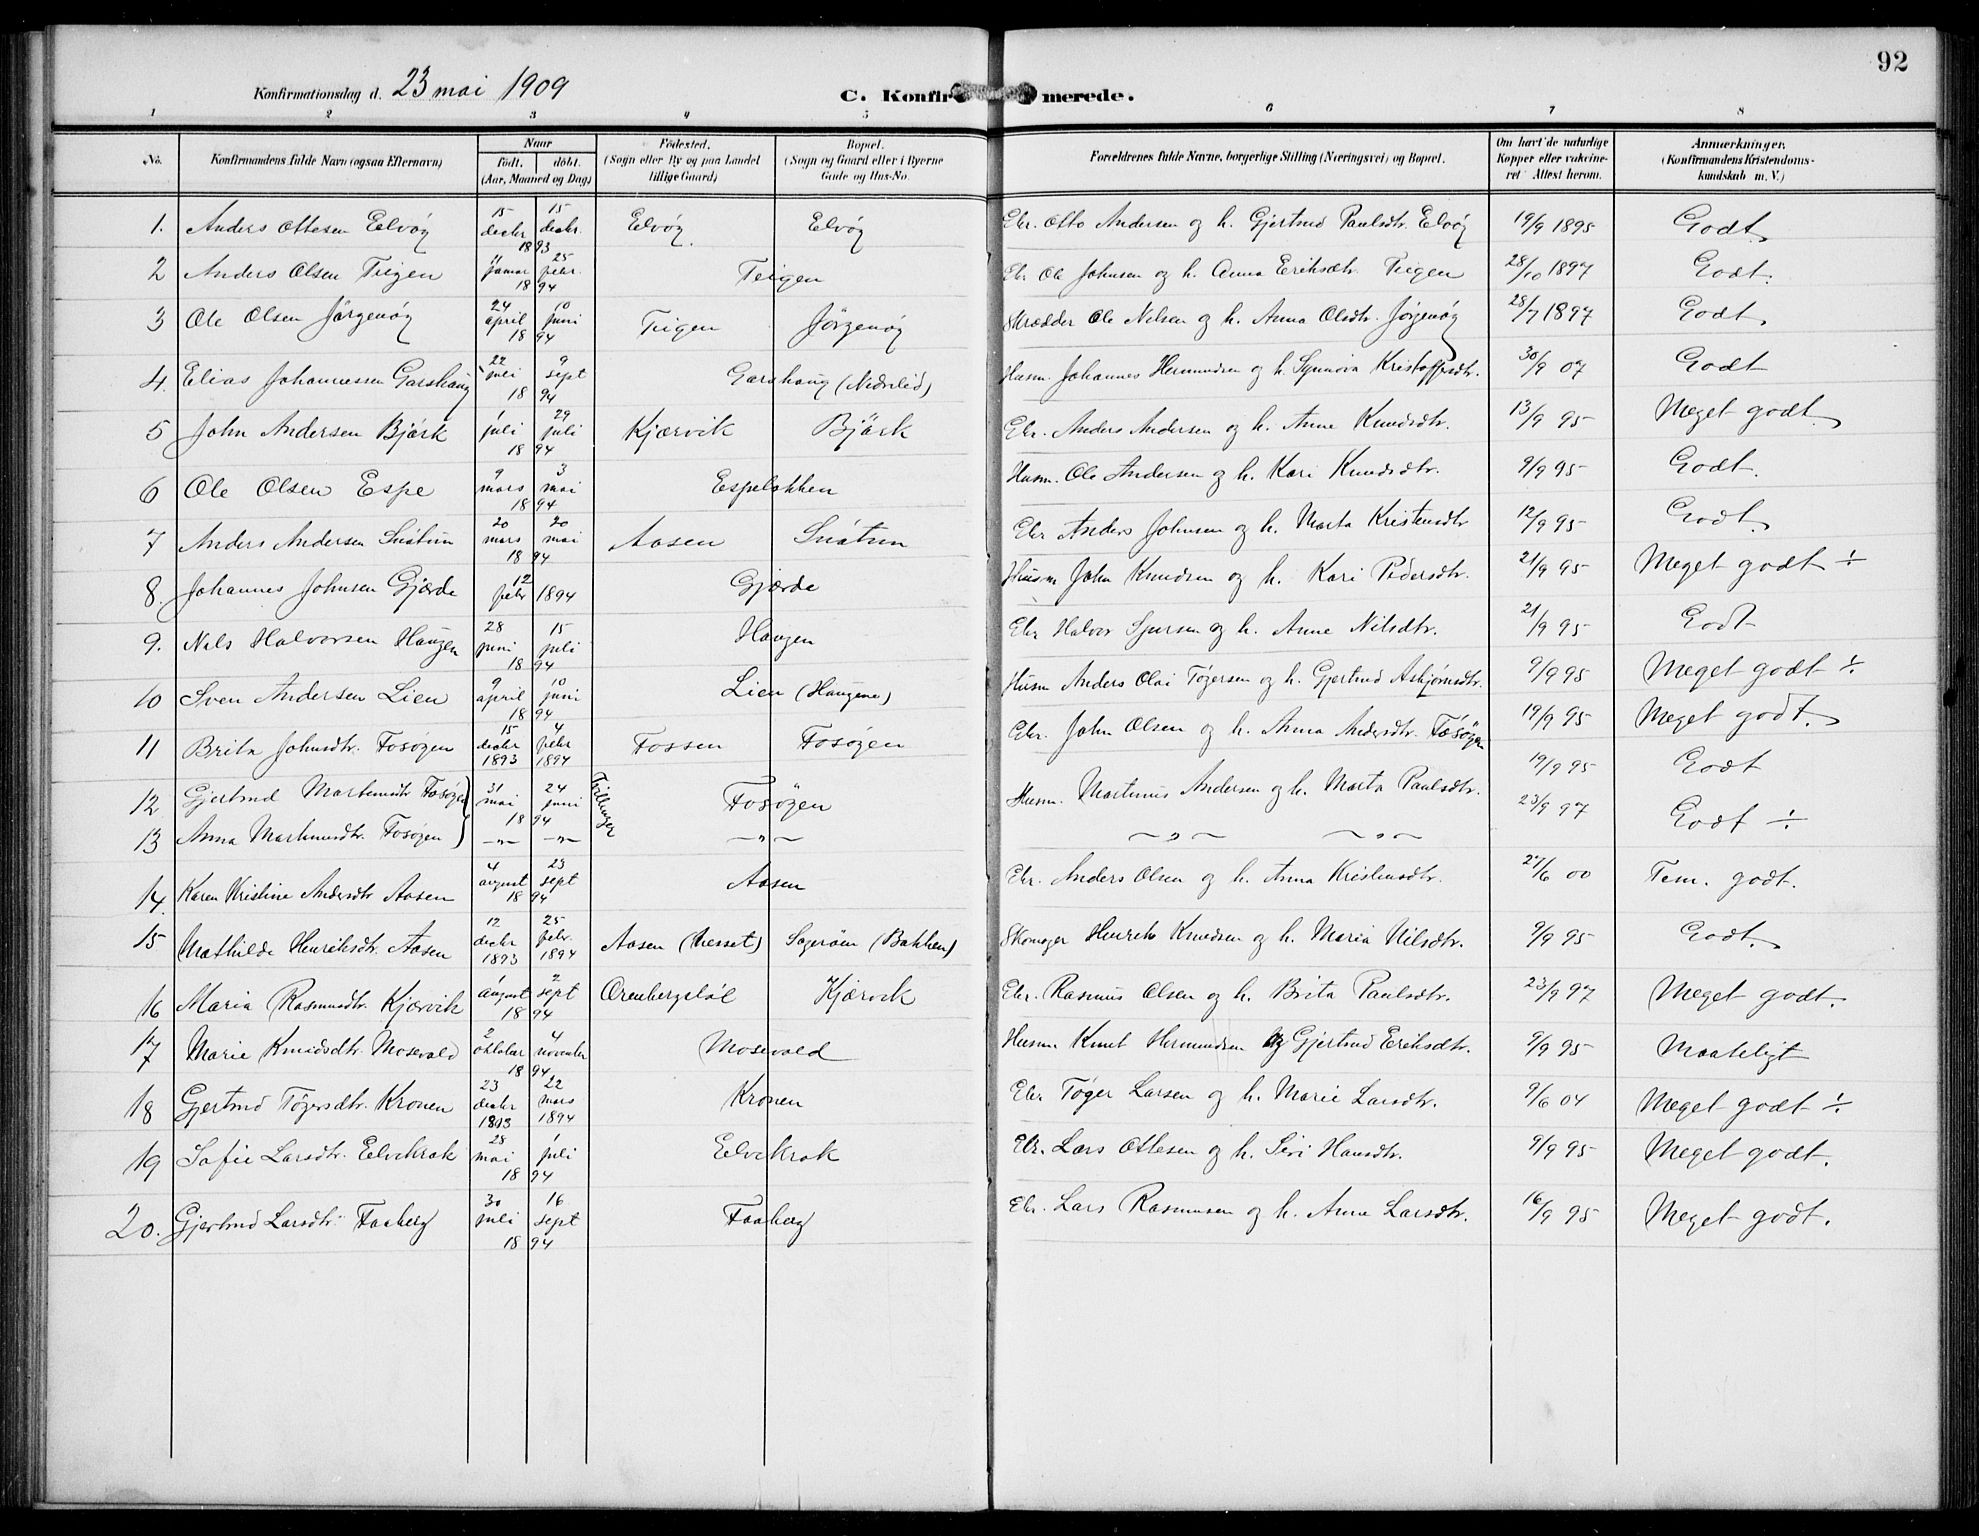 92
Konfirmationsdag d. 23 mai 1909
C. Konfirmerede.
1 2 3 4 5 6 7 8
No. Konfirmandens fulde Navn (ogsaa Efternavn) Naar født. døbt. (Aar, Maaned og Dag) Fødested. (Sogn eller By og paa Landet tillige Gaard) Bopæl. (Sogn og Gaard eller i Byerne Gade og Hus-No. Forældrenes fulde Navne, borgerlige Stilling (Næringsvei) og Bopæl. Om havt de naturlige Kopper eller vakcineret Attest herom. Anmærkninger. (Konfirmandens Kristendomskundskab m. V.)
1. Anders Ottesen Elvøy 15 decbr. 15 decbr. 1893 Elvøy Elvøy Ebr. Otto Andersen og h. Gjertrud Paulsdtr. Elvøy 19/9 1895 Godt
2 Anders Olsen Teigen 11 januar 25 febr. 1894 Teigen Ebr. Ole Johnsen og h. Anna Eriksdtr. Teigen 28/10 1897 Godt.
3 Ole Olsen Jørgenøy 24 april 10 juni 1894 Teigen Jørgenøy Skrædder Ole Nilsen og h. Anna Olsdtr. Jørgenøy 28/7 1897 Godt
4. Elias Johannessen Garshaug 22 juli 9 sept 1894 Garshaug (Nedrelid) Husm. Johannes Hermundsen og h. Synnøva Kristoffersdtr. 30/9 07 Godt
5 John Andersen Bjørk 1 juli 29 juli 1894 Kjærvik Bjørk Ebr. Anders Andersen og h. Anne Knudsdtr. 13/9 95 Meget godt.
6 Ole Olsen Espe 9 mars 3 mai 1894 Espelokken Husm. Ole Andersen og h. Kari Knudsdtr. 9/9 95 Godt.
7 Anders Andersen Snøtun 20 mars 20 mai 1894 Aasen Snøtun Ebr Anders Johnsen og h. Marta Kristensdtr 12/9 95 Godt
8. Johannes Johnsen Gjerde 12 febr 1894 Gjærde Husm John Knudsen og h. Kari Pedersdtr. 21/9 95 Meget godt ÷
9. Nils Halvorsen Haugen 28 juni 15 juli 1894 Haugen Ebr Halvor Sjursen og h. Anne Nilsdtr. 21/9 95 Godt
10 Sven Andersen Lien 9 april 10 juni 1894 Lien (Haugene) Husm Anders Olai Tøgersen og h. Gjertrud Asbjørnsdtr. 9/9 95 Meget godt ÷
11 Brita Johnsdtr. Fosøyen 15 decbr 1893 4 febr 1894 Fossen Fosøyen Ebr. John Olsen og h. Anna Andersdtr. Fosøyen 19/9 95 Meget godt.
12 Gjertrud Martinusdtr Fosøyen 31 mai 24 juni 1894 Tvillinger Fosøyen Husm. Martinus Andersen og h. Marta Paulsdtr. 19/9 95 Godt
13 Anna Martinusdtr. Fosøyen —"— —"— —"— —"— —"— 23/9 97 Godt ÷
14. Karen Kristine Andersdtr Aasen 4 august 23 sept 1894 Aasen Ebr. Anders Olsen og h. Anna Kristensdtr. 27/6 00 Tem. godt.
15 Mathilde Henriksdtr. Aasen 12 decbr 1893 25 febr. 1894 Aasen (Nesset) Søgerøen (Bakken) Skomager Henrik Knudsen og h. Maria Nilsdtr. 9/9 95 Godt.
16 Maria Rasmusdtr. Kjærvik 1 august 2 sept 1894 Ørenbergstøl Kjærvik Ebr. Rasmus Olsen og h. Brita Paulsdtr. 23/9 97 Meget godt.
17 Marie Knudsdtr. Mosevold 2 oktober 4 november 1894 Mosevold Husm Knut Hermundsen og Gjertrud Eriksdtr. 9/9 95 Maateligt
18 Gjertrud Tøgersdtr. Kronen 23 decbr 1893 22 mars 1894 Kronen Ebr Tøger Larsen og h. Marie Larsdtr. 9/6 04 Meget godt ÷
19 Sofie Larsdtr. Elvekrok 28 mai 1 juli 1894 Elvekrok Ebr. Lars Ottesen og h. Siri Hansdtr. 9/9 95 Meget godt.
20. Gjertrud Larsdtr. Faaberg 30 juli 16 sept 1894 Faaberg Ebr. Lars Rasmusen og h. Anne Larsdtr. 16/9 95 Meget godt.